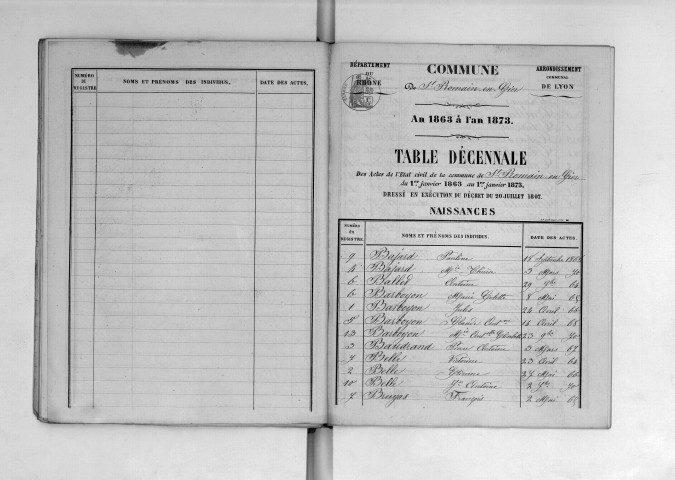 NUMÉRO DE REGISTRE
NOMS ET PRÉNOMS DES INDIVIDUS.
DATE DES ACTES.
DÉPARTEMENT DU RHÔNE
COMMUNE
De St Romain en Gier
ARRONDISSEMENT COMMUNAL DE LYON
An 1863 à l'an 1873.
TABLE DÉCENNALE
Des Actes de l'État civil de la commune de St Romain en Gier
du 1er janvier 1863 au 1er janvier 1873,
DRESSÉ EN EXÉCUTION DU DÉCRET DU 20 JUILLET 1807.
NAISSANCES
NUMÉRO DU REGISTRE.
NOMS ET PRÉNOMS DES INDIVIDUS.
DATE DES ACTES.
9 Bajard 18 Septembre
4 Bajard 3 Mars 70
6 Ballet Antoine 29 64
6 Barboyon Marie 8 Mai 65
1 Barboyon Jules 24 Avril 66
Barboyon Claude 16 Avril 68
13 Barboyon 23 9bre 70
3 Baudrand Pierre Antoine 3 Mars 67
7 Belle 23 Avril 64
2 Belle 27 Mai 66
10 Belle 2 70
7 Bruyas François 2 Mai 68